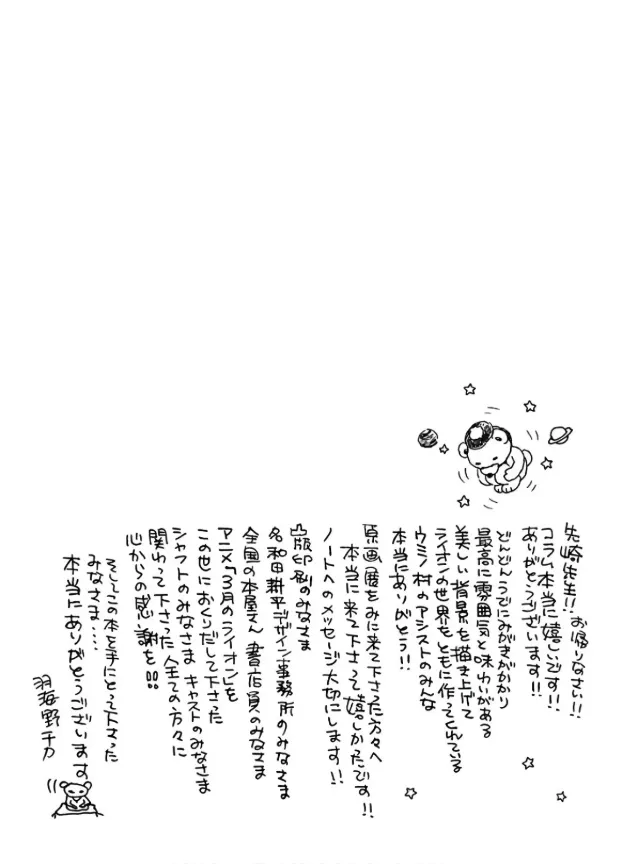 先崎先生!! お帰りなさい!!
コラム本当に嬉しいです!!
ありがとうございます!!
どんどんうでにみがきがかかり
最高に雰囲気と味わいがある
美しい背景を描き上げて
ライオンの世界をともに作ってくれている
ウミノ村のアシストのみんな
本当にありがとう!!
原画展をみに来て下さった方々へ
本当に来て下さって嬉しかったです!!
ノートへのメッセージ大切にします!!
凸版印刷のみなさま
名和田耕平デザイン事務所のみなさま
全国の本屋さん 書店員のみなさま
アニメ「3月のライオン」を
この世におくりだして下さった
シャフトのみなさま キャストのみなさま
関わって下さった全ての方々に
心からの感謝を!!
そしてこの本を手にとって下さった
みなさま・・・
本当にありがとうございます
羽海野チカ